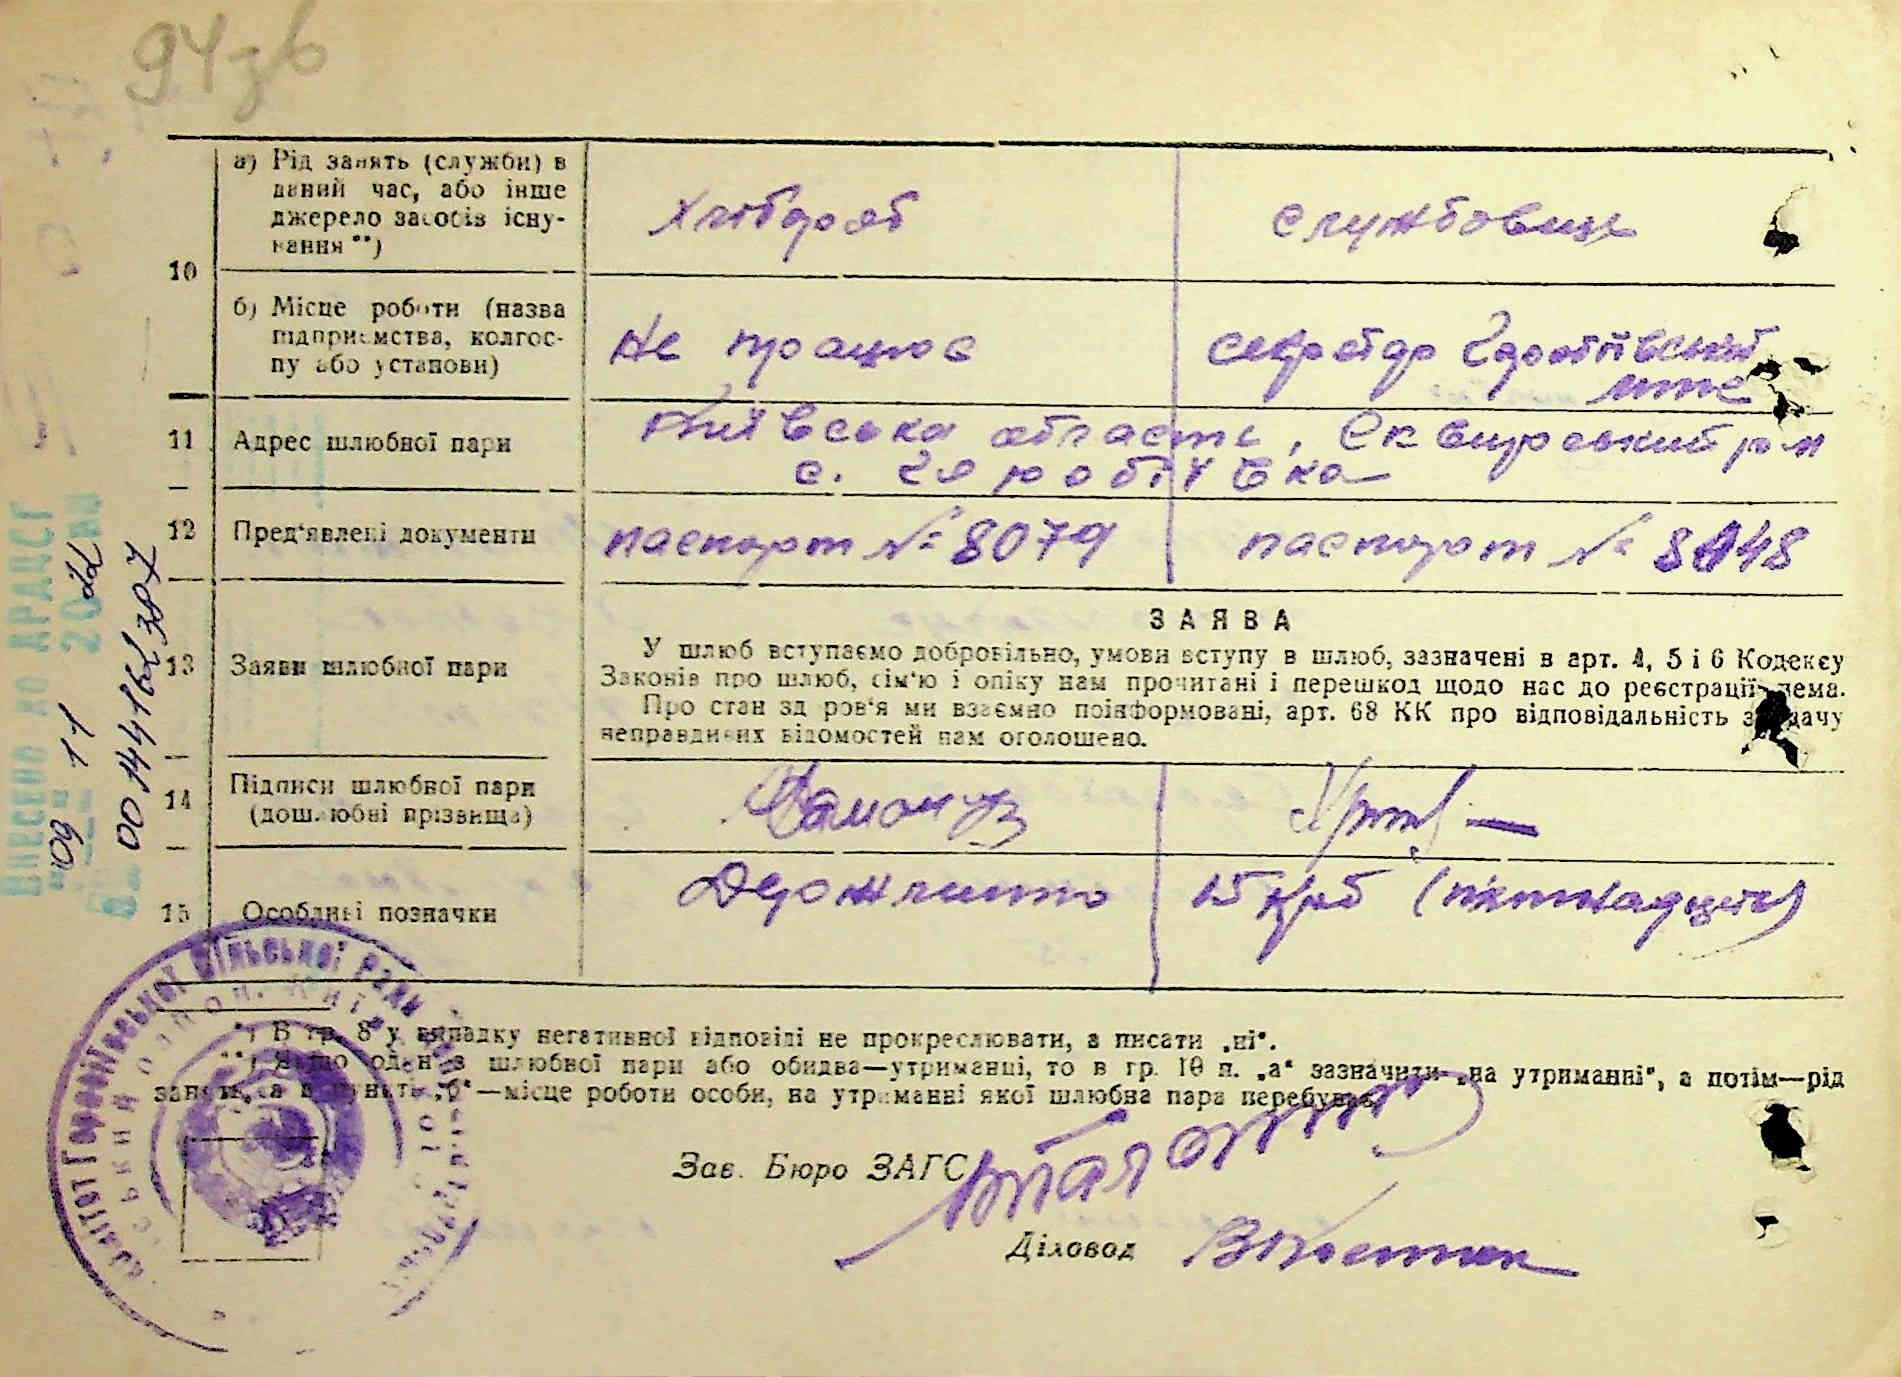 94зв
а) Рід занять (служби) в
даний час, або інше
джерело засобів існу-
вання **)
Хлібороб
Службовець
10
б) Місце роботи (назва
підприємства, колгос-
пу або установи)
Не працює
секретар
11
Адрес шлюбної пари
Київська область, Сквирський р-н
с.
12
Пред'явлені документи
паспорт № 8079
паспорт №
13
Заяви шлюбної пари
ЗАЯВА
У шлюб вступаємо добровільно, умови вступу в шлюб, зазначені в арт. 4, 5 і 6 Кодексу
Законів про шлюб, сім'ю і опіку нам прочитані і перешкод щодо нас до реєстрації нема.
Про стан здоров'я ми взаємно поінформовані, арт. 68 КК про відповідальність за дачу
неправдивих відомостей нам оголошено.
14
Підписи шлюбної пари
(дошлюбні прізвища)
15
Особливі позначки
Держмито
15 крб (п'ятнадцять)
*) В гр. 8 у випадку негативної відповіді не прокреслювати, а писати „ні“.
**) Якщо один з шлюбної пари або обидва—утриманці, то в гр. 10 п. „а“ зазначити „на утриманні“, а потім—рід
занять, а в пункті „б“—місце роботи особи, на утриманні якої шлюбна пара перебуває.
Зав. Бюро ЗАГС
Діловод
Внесено до ДРАЦСГ
"09" 11 20
00144162387
сільської ради